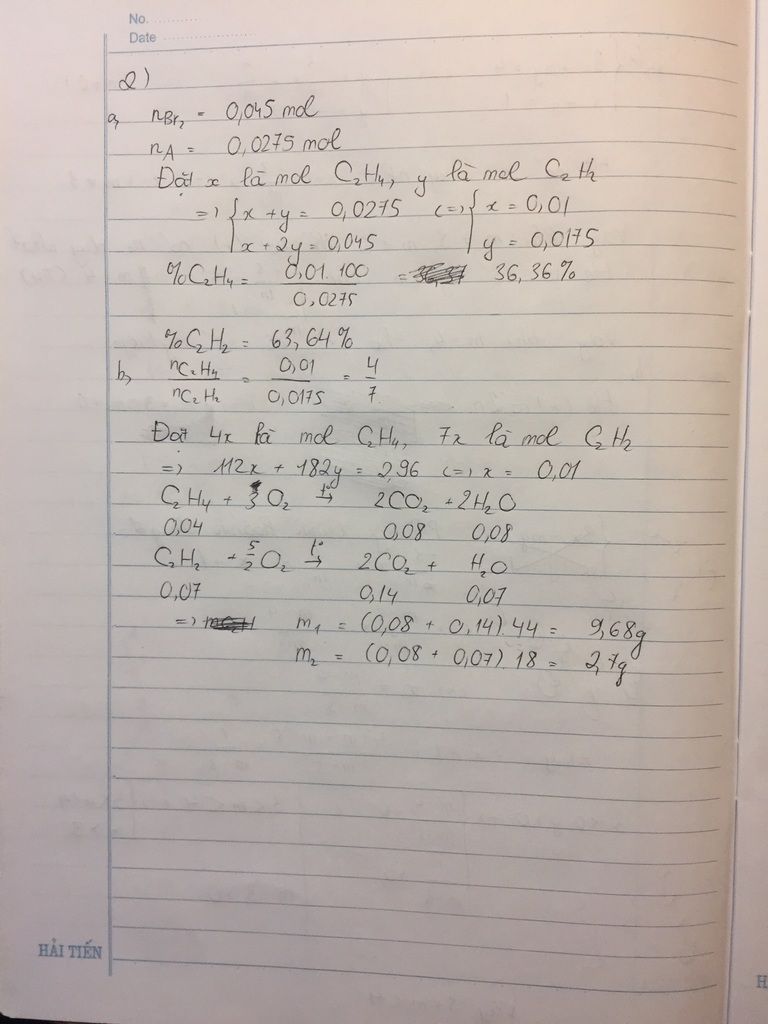 No. ............
Date ........................
2)
a, nBr₂ = 0,045 mol
nA = 0,0275 mol
Đặt x là mol C₂H₄, y là mol C₂H₂
=> { x + y = 0,0275 <=> { x = 0,01
x + 2y = 0,045 y = 0,0175
%C₂H₄ = 0,01.100 / 0,0275 = 36,36%
%C₂H₂ = 63,64%
b, nC₂H₄ / nC₂H₂ = 0,01 / 0,0175 = 4 / 7
Đặt 4x là mol C₂H₄, 7x là mol C₂H₂
=> 112x + 182y = 2,96 <=> x = 0,01
C₂H₄ + 3O₂ t°→ 2CO₂ + 2H₂O
0,04 0,08 0,08
C₂H₂ + 5/2 O₂ t°→ 2CO₂ + H₂O
0,07 0,14 0,07
=> m₁ = (0,08 + 0,14).44 = 9,68g
m₂ = (0,08 + 0,07).18 = 2,7g
HẢI TIẾN
H